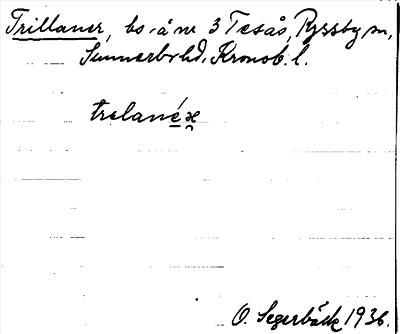 Trillaner, bs. å nr 3 Tesås, Ryssby sn,
Sunnerbo hd. Kronob. l.
trelanéʀ
O. Segerbäck 1936.